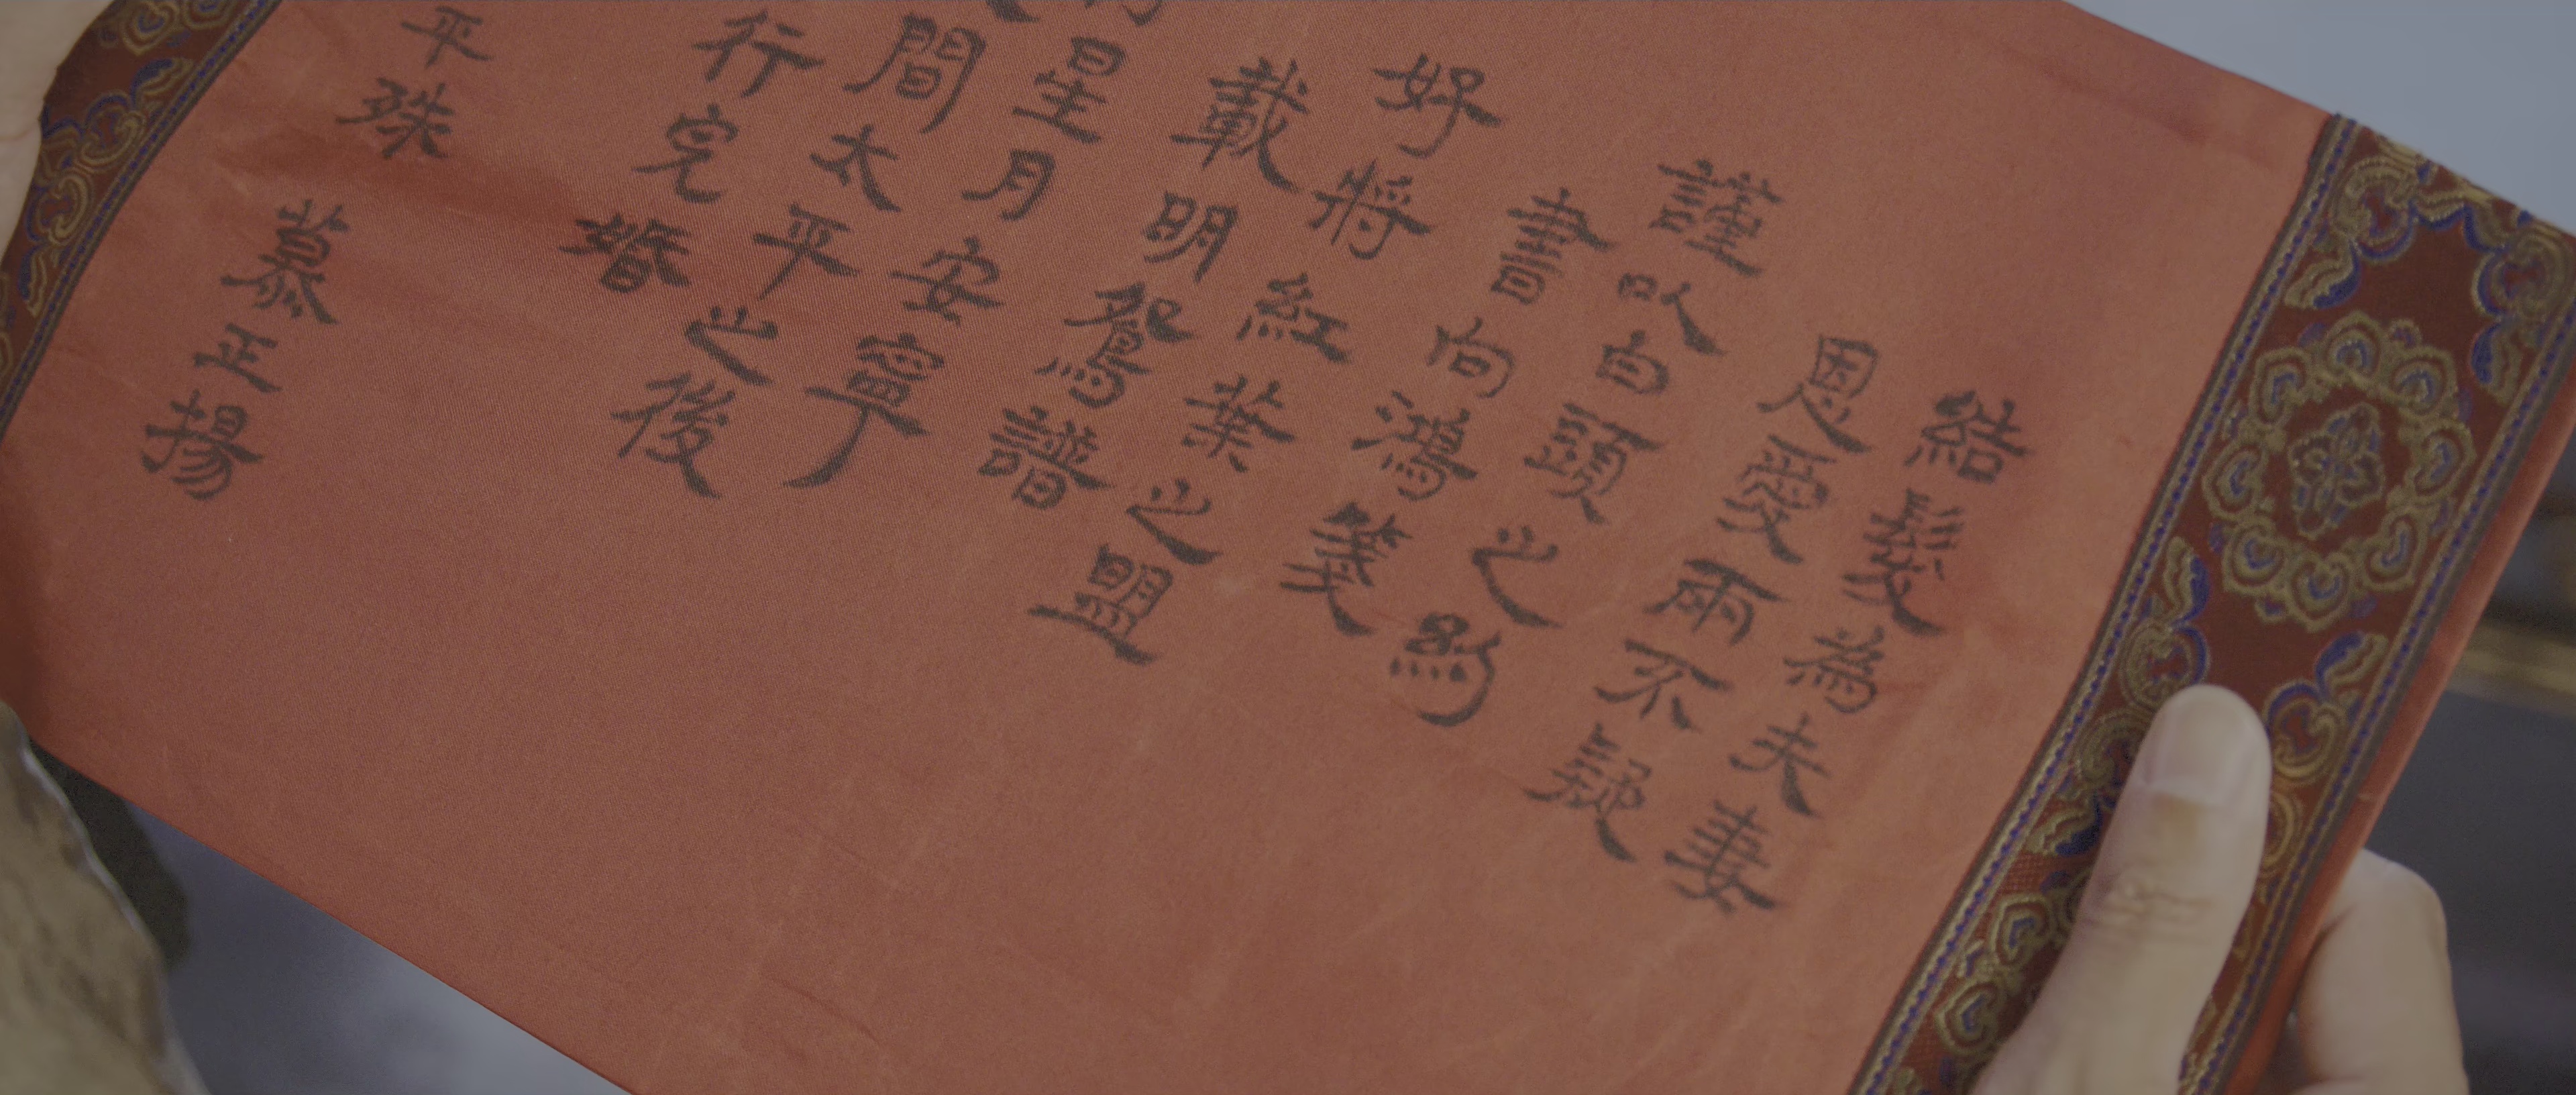 結髮為夫妻
恩愛兩不疑
謹以白頭之約
書向鴻箋
好將紅葉之盟
載明鴛譜
星月安寧
間太平之後
行完婚
平殊
慕正揚